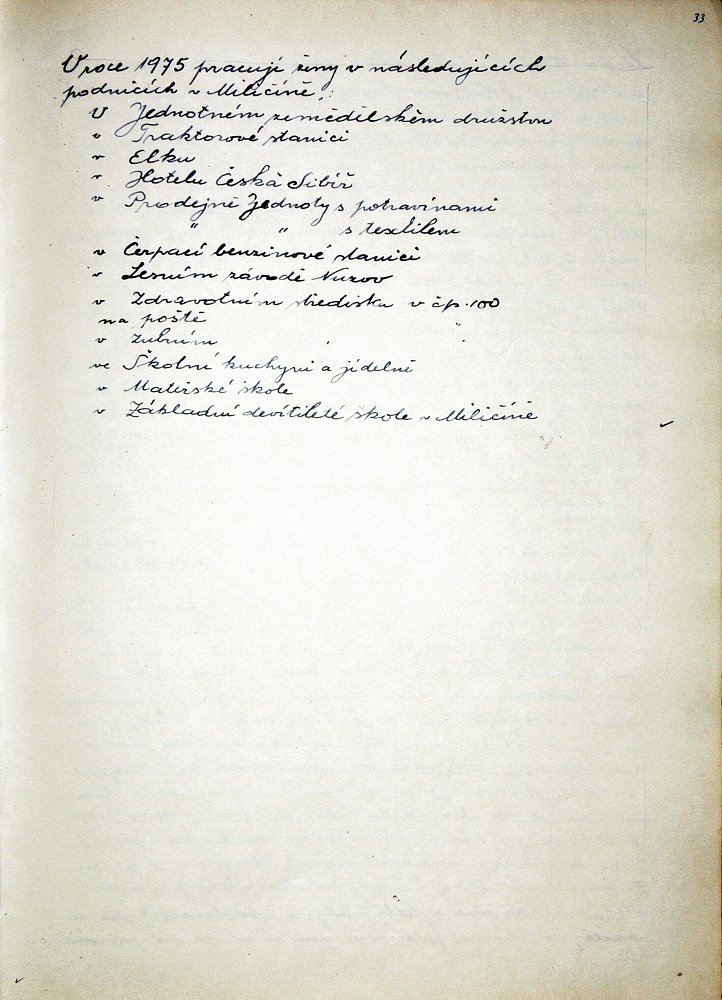 33
V roce 1975 pracují ženy v následujících
podnicích v Miličíně:
V Jednotném zemědělském družstvu
v Traktorové stanici
v Elku
v Hotelu Česká Sibiř
v Prodejně Jednoty s potravinami
" " s textilem
v Čerpací benzinové stanici
v Lesním závodě Nuzov
v Zdravotním středisku v čp. 100
na poště
v Zubním " "
ve Školní kuchyni a jídelně
v Mateřské škole
v Základní devítileté škole v Miličíně